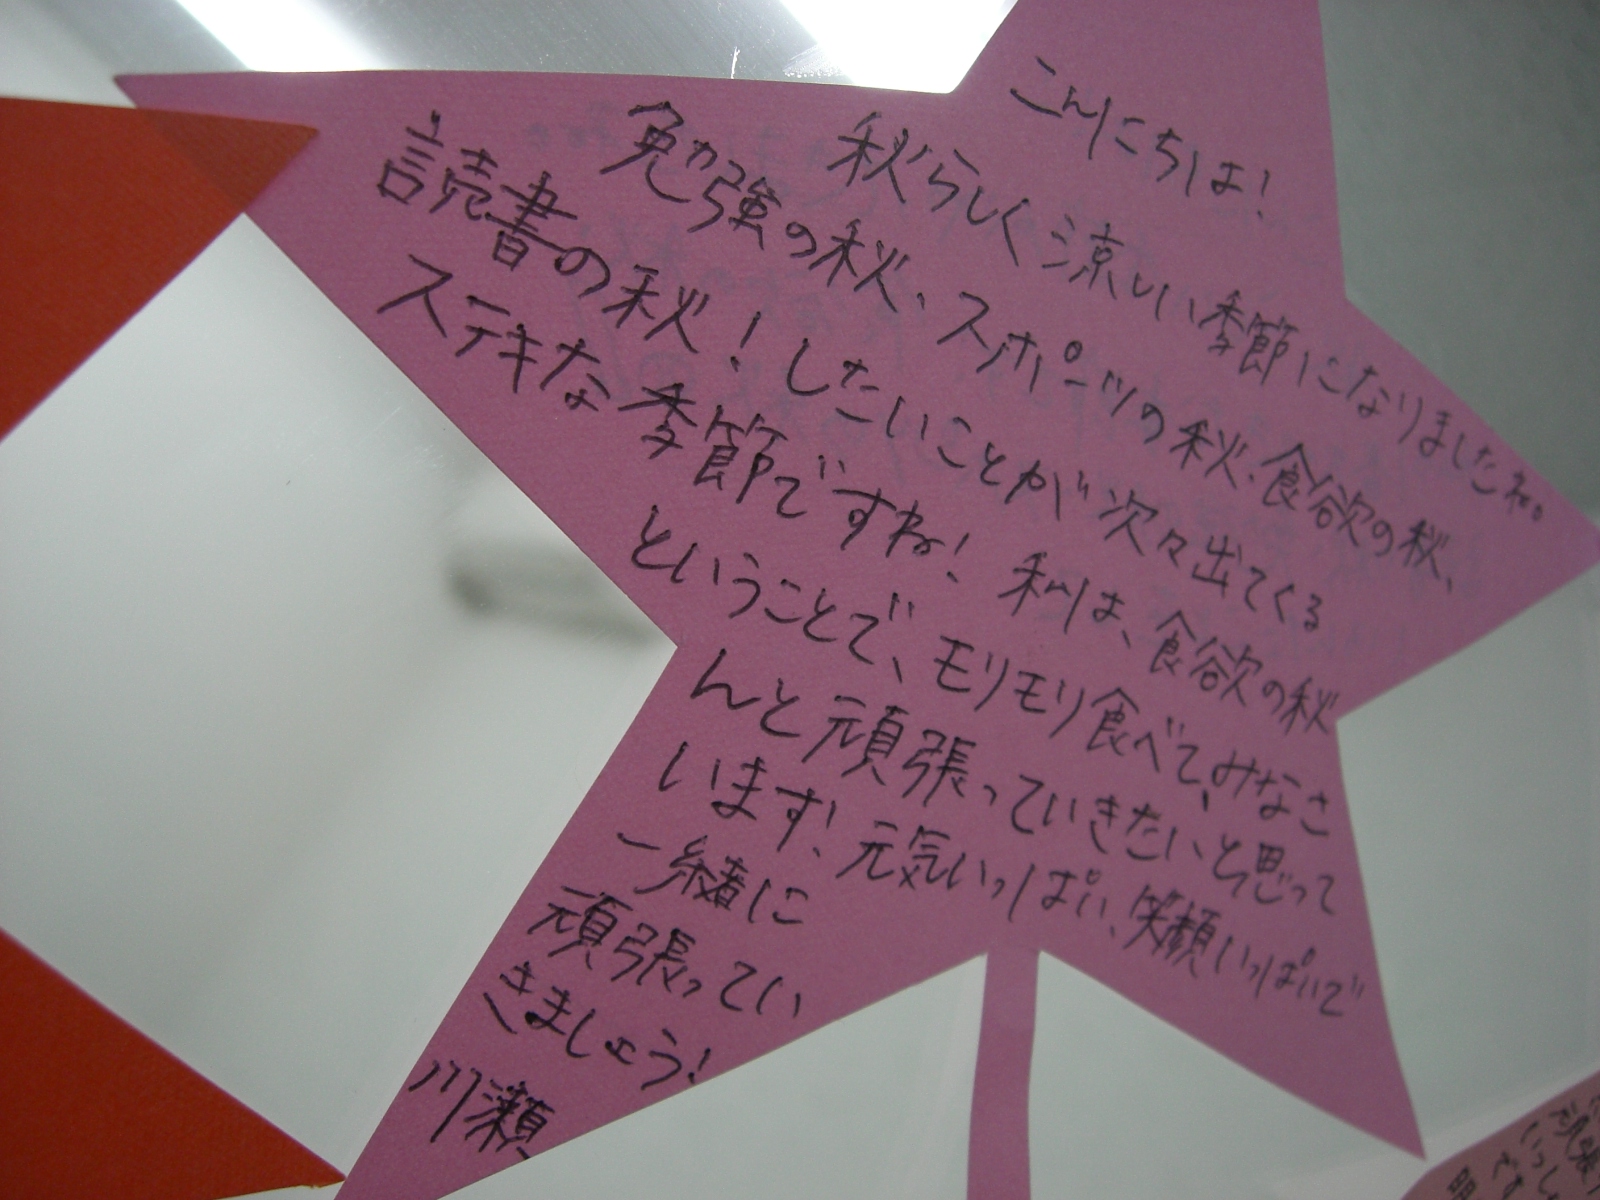 こんにちは!
秋らしく涼しい季節になりましたね。
勉強の秋、スポーツの秋、食欲の秋、
読書の秋!したいことが次々出てくる
ステキな季節ですね!私は、食欲の秋
ということで、モリモリ食べて、みなさ
んと頑張っていきたいと思って
います!元気いっぱい、笑顔いっぱいで
一緒に
頑張ってい
きましょう!
川瀬